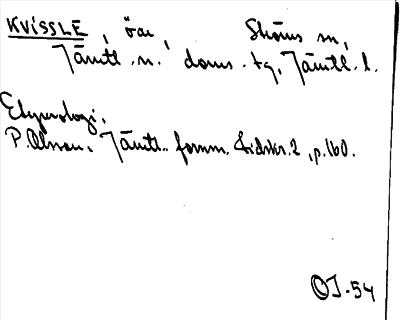 KVISSLE, öar, Ströms sn,
Jämtl. n. doms. tg, Jämtl. l.
Etymologi,
P. Olsson, Jämtl. fornm. tidskr. 2, p. 160.
OJ-54